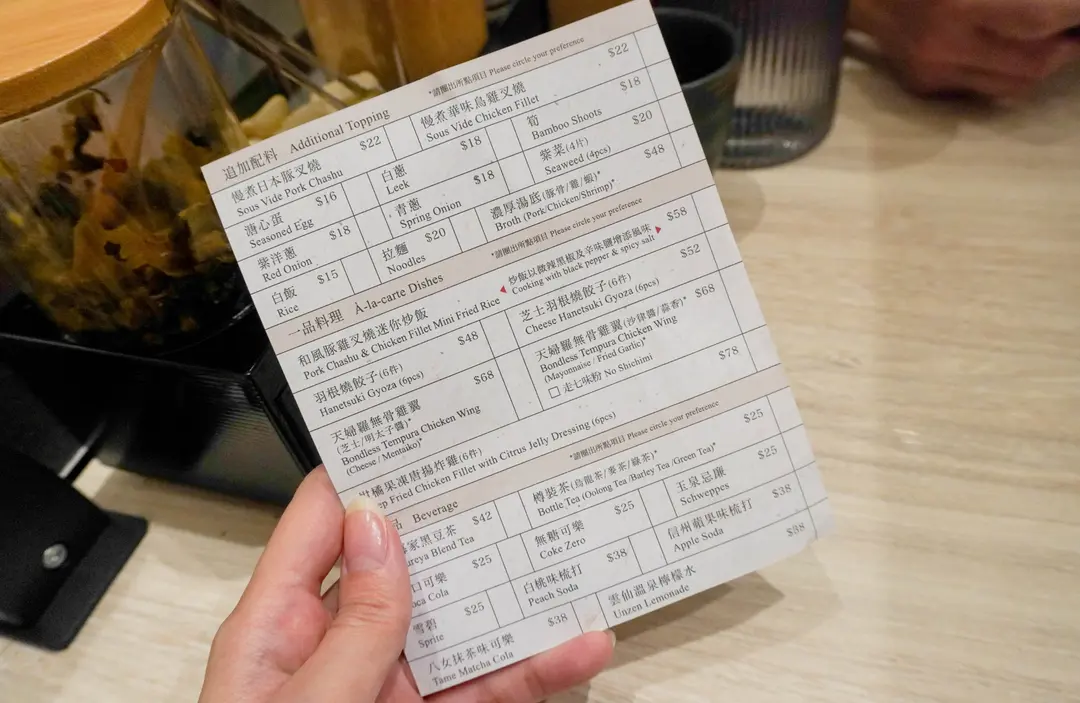 追加配料 Additional Topping *請圈出所點項目 Please circle your preference
慢煮日本豚叉燒 $22
Sous Vide Pork Chashu
慢煮華味烏雞叉燒 $22
Sous Vide Chicken Fillet
溏心蛋 $16
Seasoned Egg
白蔥 $18
Leek
筍 $18
Bamboo Shoots
紫洋蔥 $18
Red Onion
青蔥 $18
Spring Onion
紫菜(4片) $20
Seaweed (4pcs)
白飯 $15
Rice
拉麵 $20
Noodles
濃厚湯底(豚骨/雞/蝦)* $48
Broth (Pork/Chicken/Shrimp)*
一品料理 À-la-carte Dishes *請圈出所點項目 Please circle your preference
和風豚雞叉燒迷你炒飯 $58
Pork Chashu & Chicken Fillet Mini Fried Rice
炒飯以微辣黑椒及辛味鹽增添風味
Cooking with black pepper & spicy salt
羽根燒餃子(6件) $48
Hanetsuki Gyoza (6pcs)
芝士羽根燒餃子(6件) $52
Cheese Hanetsuki Gyoza (6pcs)
天婦羅無骨雞翼 $68
(芝士/明太子醬)*
Bondless Tempura Chicken Wing
(Cheese / Mentaiko)*
天婦羅無骨雞翼(沙律醬/蒜香)* $68
Bondless Tempura Chicken Wing
(Mayonnaise / Fried Garlic)*
走七味粉 No Shichimi
橘果凍唐揚炸雞(6件) $78
Fried Chicken Fillet with Citrus Jelly Dressing (6pcs)
品 Beverage *請圈出所點項目 Please circle your preference
家黑豆茶 $42
reya Blend Tea
樽裝茶(烏龍茶/麥茶/綠茶)* $25
Bottle Tea (Oolong Tea /Barley Tea /Green Tea)*
口可樂 $25
oca Cola
無糖可樂 $25
Coke Zero
玉泉忌廉 $25
Schweppes
雪碧 $25
Sprite
白桃味梳打 $38
Peach Soda
信州蘋果味梳打 $38
Apple Soda
八女抹茶味可樂 $38
Tame Matcha Cola
雲仙溫泉檸檬水 $38
Unzen Lemonade